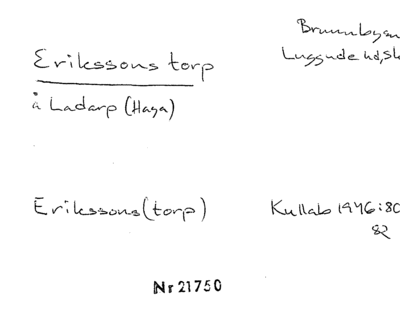 Brunnbysn
Erikssons torp
Luggude hd, Sk
å Ladarp (Haga)
Erikssons (torp)
Kullab 1946:80
82
Nr 21750